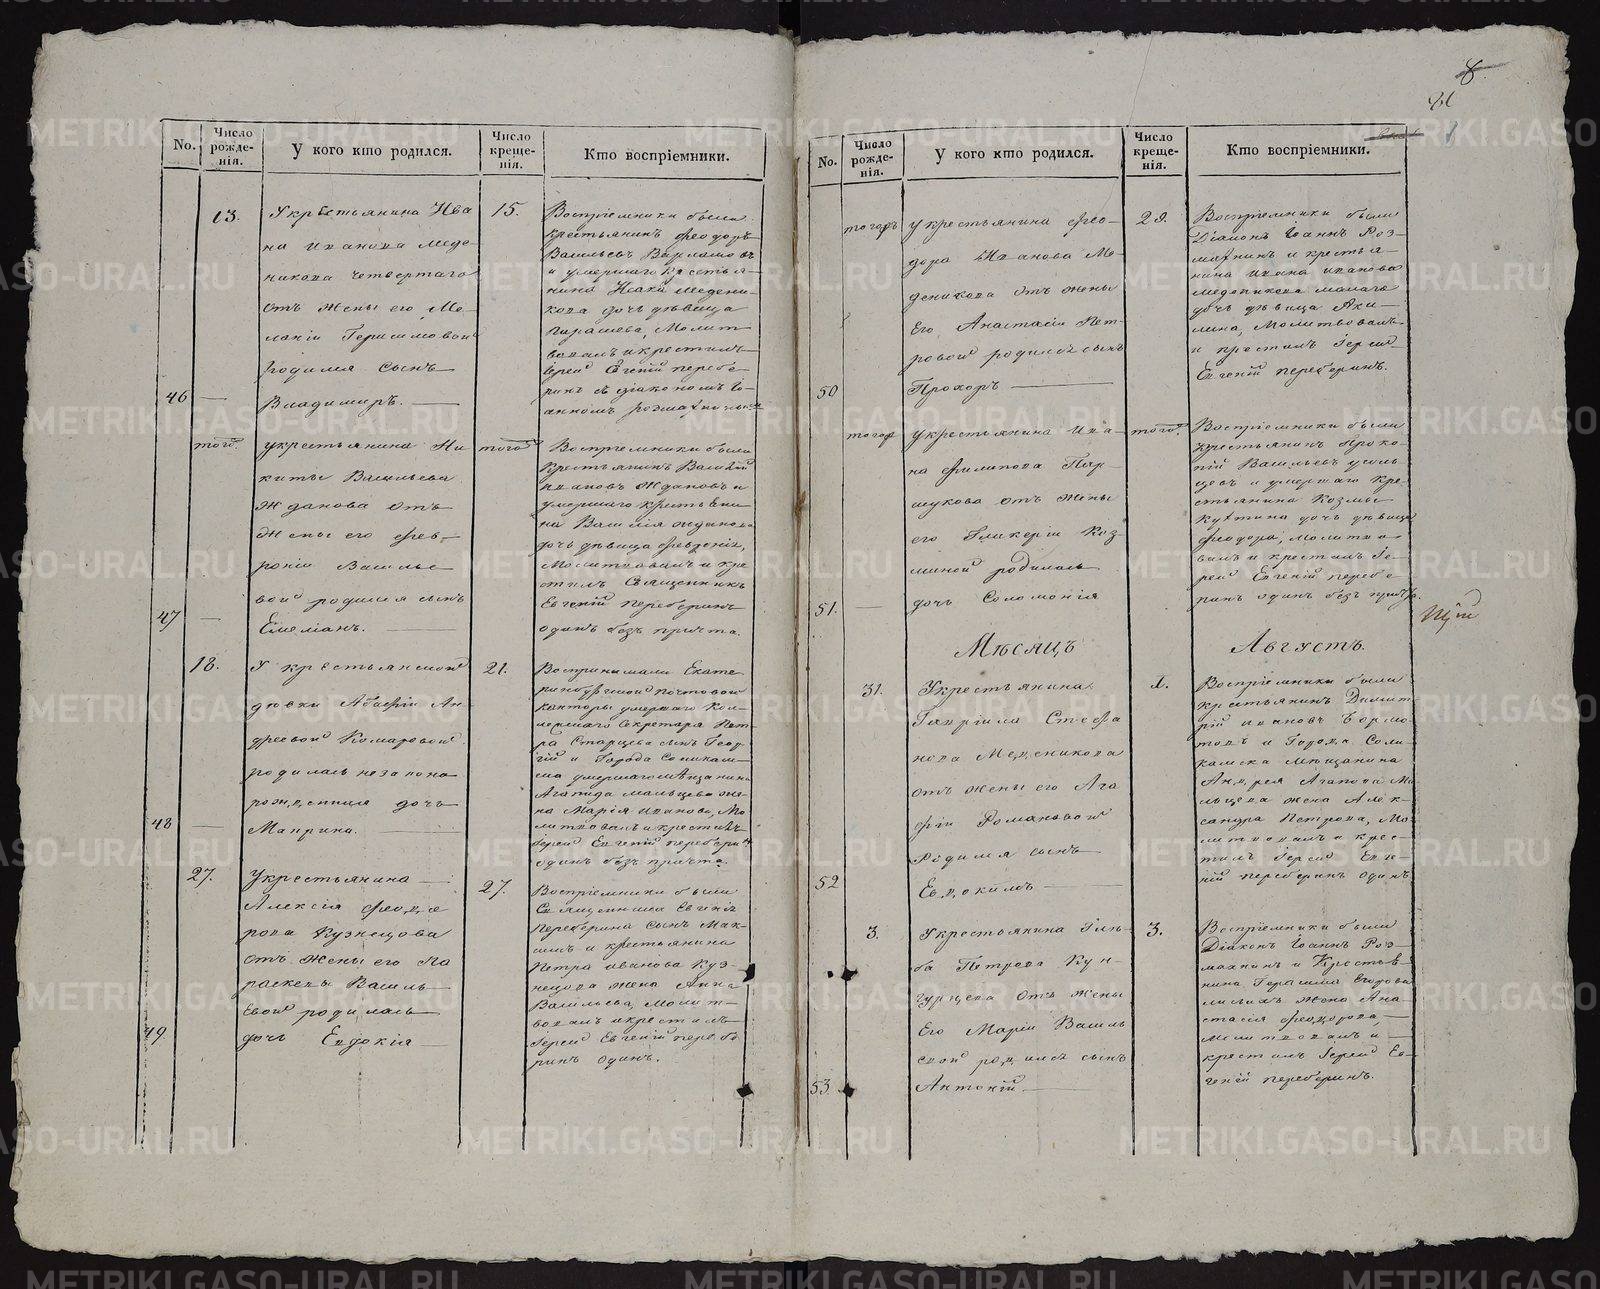 No.
Число рожде-нія.
У кого кто родился.
Число креще-нія.
Кто воспріемники.
13.
Укрестьянина Ива
на Иванова Меде
никова четвертаго
отъ жены его Ме
ланіи Герасимовой
родился сынъ
46
Владимиръ.
15.
Воспріемники были
крестьянинъ Феодоръ
Васильевъ Варламовъ
и умершаго крестья
нина Исака Медени
кова дочь дѣвица
Молит
вовалъ и крестилъ
Іерей Евгеній перебе
ринъ съ діакономъ Іо
анномъ
того
укрестьянина Ни
киты Васильева
Жданова отъ
жены его Фев
роніи Василье
вой родился сынъ
47
Емеліанъ.
того
Воспріемники были
крестьянинъ Василій
Ивановъ Ждановъ и
умершаго крестьяни
на Василія Жданова
дочь дѣвица
Молитвовалъ и кре
стилъ Священникъ
Евгеній переберинъ
одинъ безъ причта.
18.
У крестьянской
дѣвки Агафіи Ан
дреевой Комаровой
родилась незаконо
рожденная дочь
48
Матрина.
21.
Воспринимали Екате
ринбургской почтовой
конторы умершаго Кол
лежскаго Секретаря Пет
ра Старцева сынъ Геор
гій и Города Соликам
ска умершаго мѣщанина
Агапида Мальцева же
на Марія Иванова, Мо
литвовалъ и крестилъ
Іерей Евгеній переберинъ
одинъ безъ причта.
27.
Укрестьянина
Алексія Феодо
рова Кузнецова
отъ жены его Па
раскевы Василь
евой родилась
49
дочь Евдокія
27.
Воспріемники были
Священника Евгенія
Переберина сынъ Мак
симъ и крестьянина
Петра Иванова Куз
нецова жена Анна
Васильева, Молит
вовалъ и крестилъ
Іерей Евгеній перебе
ринъ одинъ.
8.
No.
Число рожде-нія.
У кого кто родился.
Число креще-нія.
Кто воспріемники.
тогожъ
укрестьянина Фео
дора Иванова Ме
деникова отъ жены
Его Анастасіи Пет
ровой родился сынъ
50
Прохоръ
29.
Воспріемники были
Діаконъ Іоаннъ Роз
махнинъ и крестья
нина Ивана Иванова
Меденикова малаго
дочь дѣвица Аки
лина, Молитвовалъ
и крестилъ Іерей
Евгеній переберинъ.
тогожъ
укрестьянина Ива
на Филипова Пар
шукова отъ жены
его Гликеріи Коз
миной родилась
51.
дочь Соломонія
того
Воспріемники были
крестьянинъ Проко
пій Васильевъ
и умершаго кре
стьянина Козмы
дочь дѣвица
Феодора, Молитво
валъ и крестилъ Іе
рей Евгеній перебе
ринъ одинъ безъ причта.
Мѣсяцъ Августъ.
31.
Укрестьянина
Гавріила Стефа
нова Меденикова
отъ жены его Ага
фіи Романовой
Родился сынъ
52
Евдокимъ
1.
Воспріемники были
крестьянинъ Димит
рій Ивановъ Бормо
товъ и Города Соли
камска мѣщанина
Андрея Агапова Ма
льцева жена Алек
сандра Петрова, Мо
литвовалъ и крес
тилъ Іерей Евге
ній переберинъ одинъ
3.
Укрестьянина Глѣ
ба Петрова Кун
гурцева отъ жены
Его Маріи Василь
евой родился сынъ
53
Антоній.
3.
Воспріемники были
Діаконъ Іоаннъ Роз
махнинъ и Крестья
нина Герасима Егорова
жена Ана
стасія Феодорова,
молитвовалъ и
крестилъ Іерей Ев
геній переберинъ.
METRIKI.GASO-URAL.RU